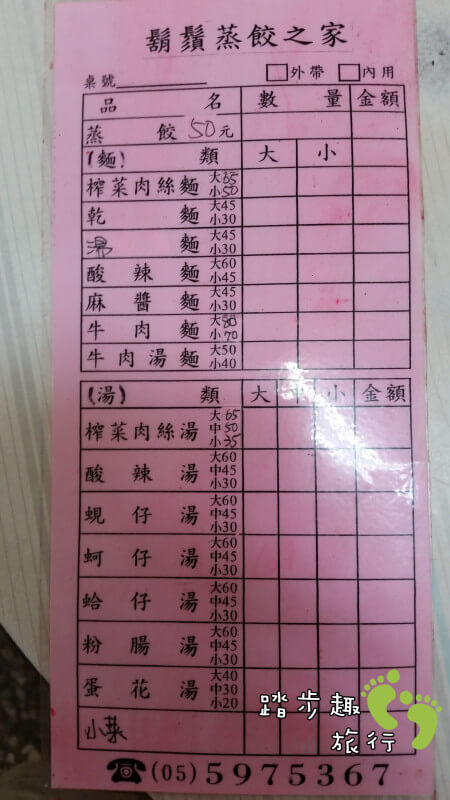 鬍鬚蒸餃之家
桌號 □外帶 □內用
品名 數量 金額
蒸餃50元
(麵)類 大 小
榨菜肉絲麵 大65 小50
乾麵 大45 小30
湯麵 大45 小30
酸辣麵 大60 小45
麻醬麵 大45 小30
牛肉麵 大80 小70
牛肉湯麵 大50 小40
(湯)類 大 中 小 金額
榨菜肉絲湯 大65 中50 小35
酸辣湯 大60 中45 小30
蜆仔湯 大60 中45 小30
蚵仔湯 大60 中45 小30
蛤仔湯 大60 中45 小30
粉腸湯 大60 中45 小30
蛋花湯 大40 中30 小20
小菜
☎(05)5975367
踏步趣
旅行